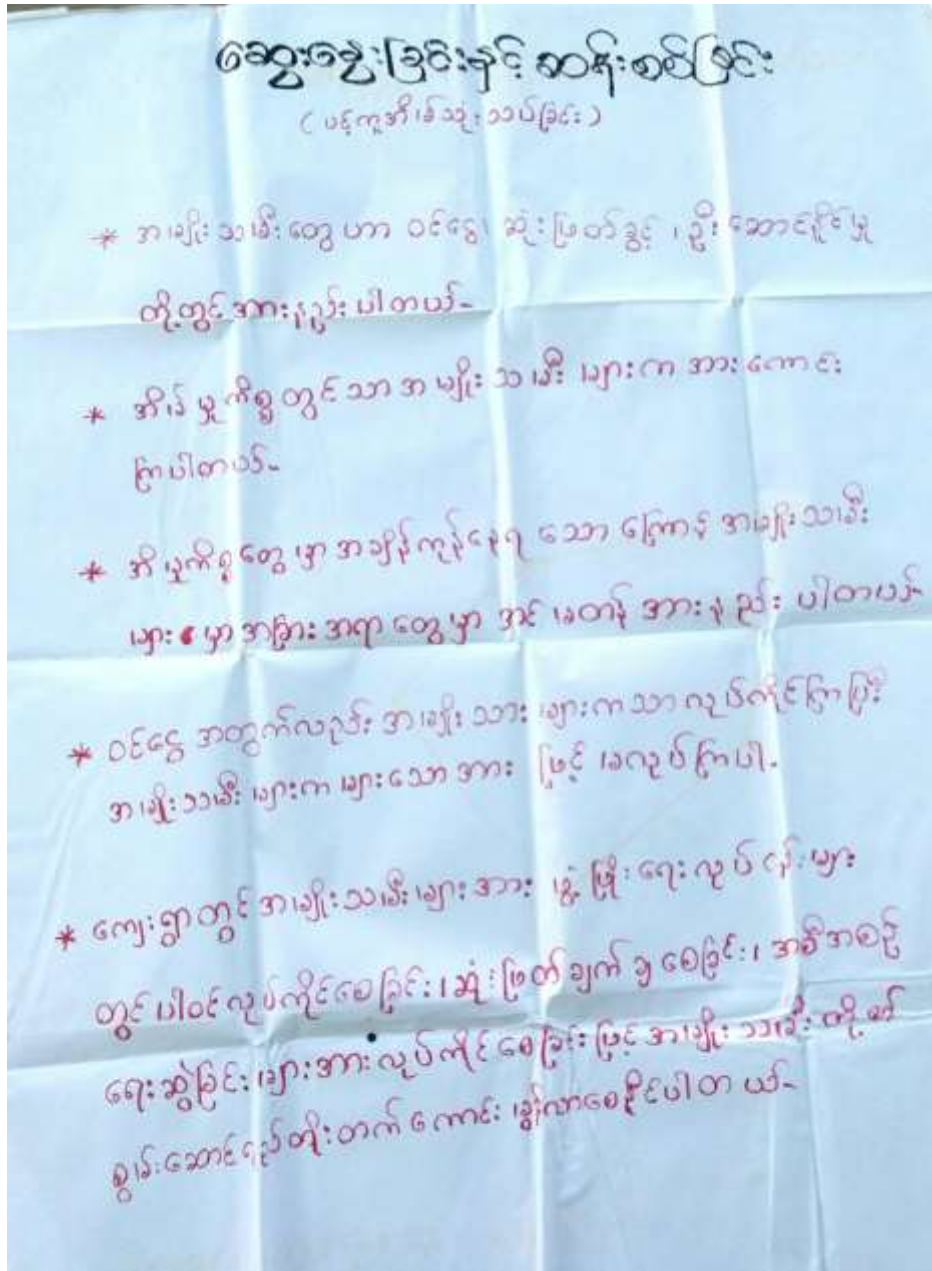 ဆွေးနွေးခြင်းနှင့် ဆန်းစစ်ခြင်း
(ပင့်ကူအိမ်သုံးသပ်ခြင်း)
* အမျိုးသမီးတွေဟာ ဝင်ငွေ၊ ဆုံးဖြတ်ခွင့်၊ ဦးဆောင်နိုင်မှု
တို့တွင် အားနည်းပါတယ်-
* အိမ်မှုကိစ္စတွင်သာ အမျိုးသမီးများက အားကောင်း
ကြပါတယ်-
* အိမှုကိစ္စတွေမှာ အချိန်ကုန်နေရသောကြောင့် အမျိုးသမီး
များမှာ အခြားအရာတွေမှာ အင်မတန် အားနည်းပါတယ်-
* ဝင်ငွေအတွက်လည်း အမျိုးသားများကသာ လုပ်ကိုင်ကြပြီး
အမျိုးသမီးများက များသောအားဖြင့် မလုပ်ကြပါ-
* ကျေးရွာတွင် အမျိုးသမီးများအား ဖွံ့ဖြိုးရေးလုပ်ငန်းများ
တွင် ပါဝင်လုပ်ကိုင်စေခြင်း၊ ဆုံးဖြတ်ချက်ချစေခြင်း၊ အစီအစဉ်
ရေးဆွဲခြင်းများအား လုပ်ကိုင်စေခြင်းဖြင့် အမျိုးသမီးတို့၏
စွမ်းဆောင်ရည်တိုးတက်ကောင်းမွန်လာစေနိုင်ပါတယ်-